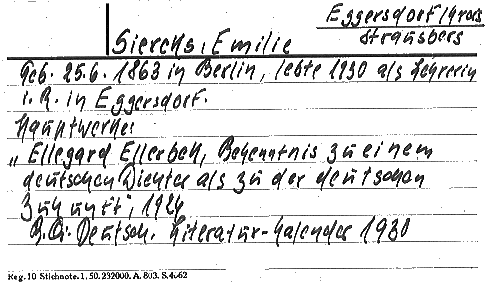 Eggersdorf/Krs.
Strausberg
Siercks, Emilie
Geb. 25.6. 1863 in Berlin, lebte 1930 als Lehrerin
i. R. in Eggersdorf.
Hauptwerke:
„Ellegard Ellerbek, Bekenntnis zu einem
deutschen Dichter als zu der deutschen
Zukunft", 1924
Deutsch. Literatur-Kalender 1930
Reg. 10 Stichnote. 1, 50. 232000. A. 803. S. 4062